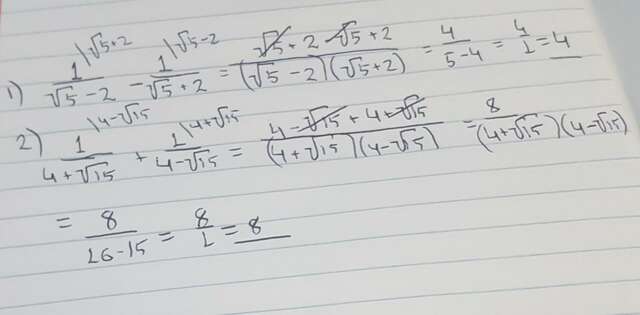 1) 1/(√5-2) \√5+2 - 1/(√5+2) \√5-2 = (√5+2-√5+2)/((√5-2)(√5+2)) = 4/(5-4) = 4/1 = 4
2) 1/(4+√15) \4-√15 + 1/(4-√15) \4+√15 = (4-√15+4+√15)/((4+√15)(4-√15)) = 8/((4+√15)(4-√15))
= 8/(16-15) = 8/1 = 8